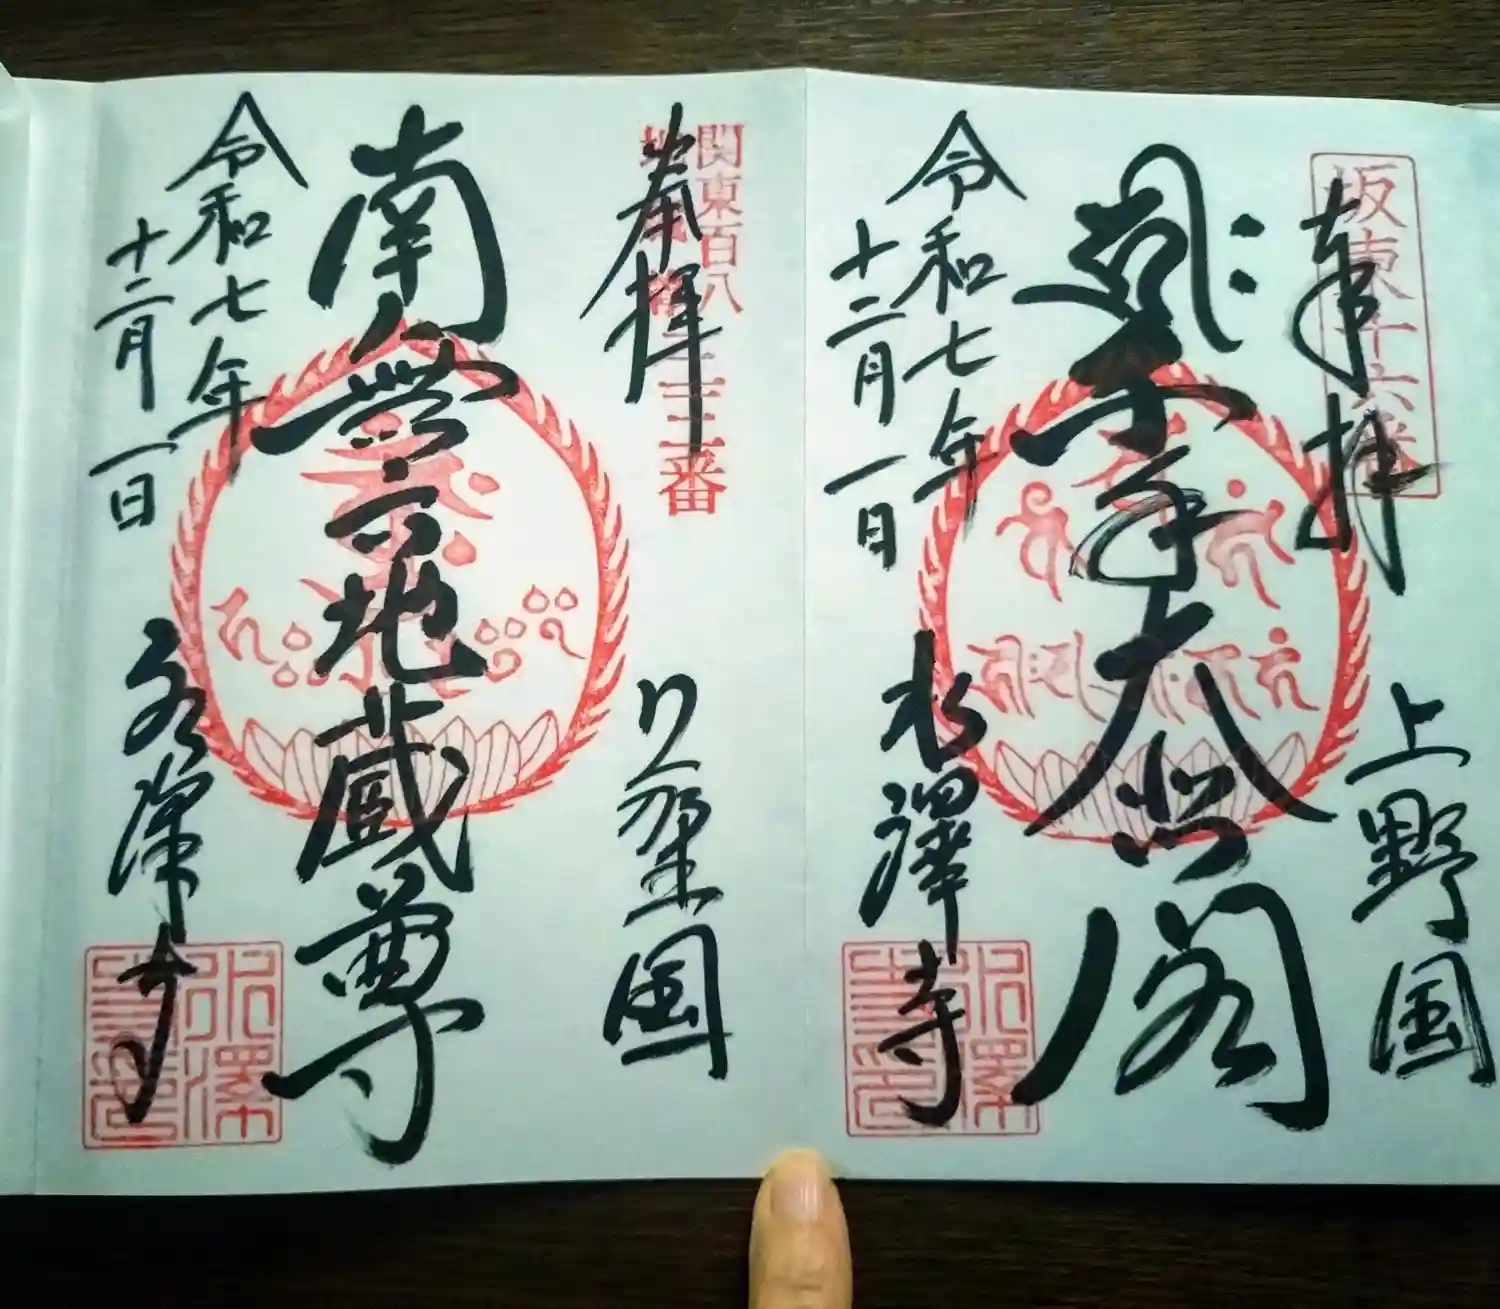 坂東十六番
奉拝
上野国
千手大悲閣
令和七年
十二月一日
水澤寺
関東百八
地蔵
三三番
奉拝
国
南無六地蔵尊
令和七年
十二月一日
水澤寺